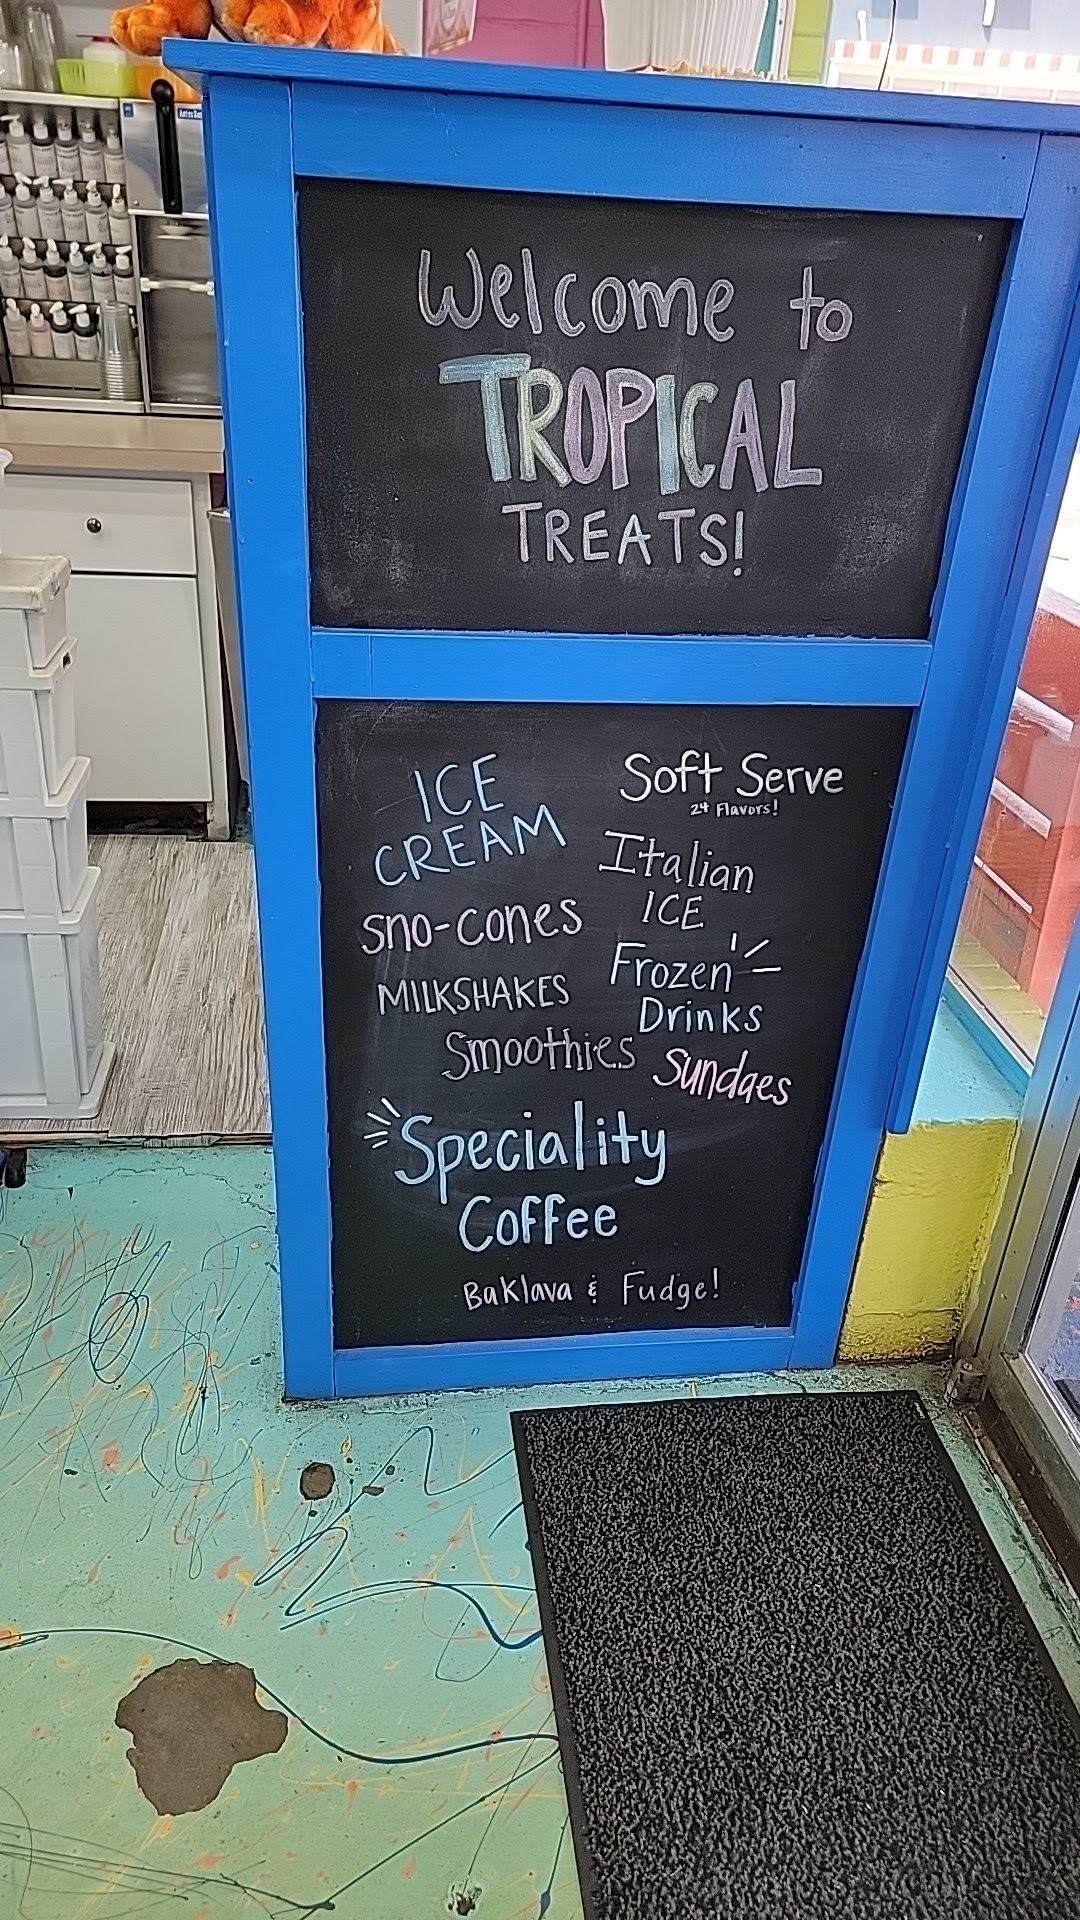 Welcome to
TROPICAL
TREATS!
ICE
CREAM
Sno-Cones
MILKSHAKES
Smoothies
Soft Serve
24 Flavors!
Italian
ICE
Frozen
Drinks
Sundaes
Speciality
Coffee
Baklava & Fudge!